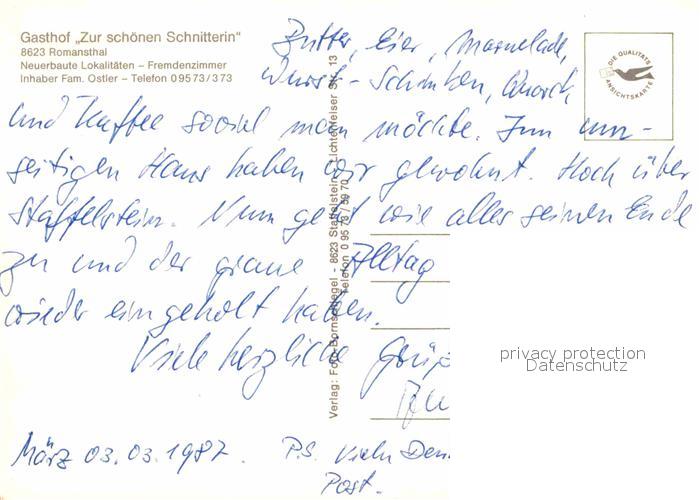 Gasthof „Zur schönen Schnitterin“
8623 Romansthal
Neuerbaute Lokalitäten – Fremdenzimmer
Inhaber Fam. Ostler – Telefon 0 95 73 / 3 73
Butter, Eier, Marmelade,
Wurst - Schinken, Quark
und Kaffee soviel man möchte. Im um-
seitigen Haus haben wir gewohnt. Hoch über
Staffelstein. Nun geht wie alles seinen Ende
zu und der graue Alltag
wieder eingeholt haben.
Viele herzliche Grüß
März 03.03.1987. P.S. Vielen Dan
Post.
Verlag: Foto-Bornschlegel - 8623 Staffelstein - Lichtenfelser Str. 13
Telefon 0 95 73 / 59 70
DIE QUALITÄTS
ANSICHTSKARTE
privacy protection
Datenschutz